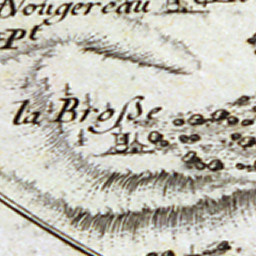 Nougereau
Pt
la Brosse